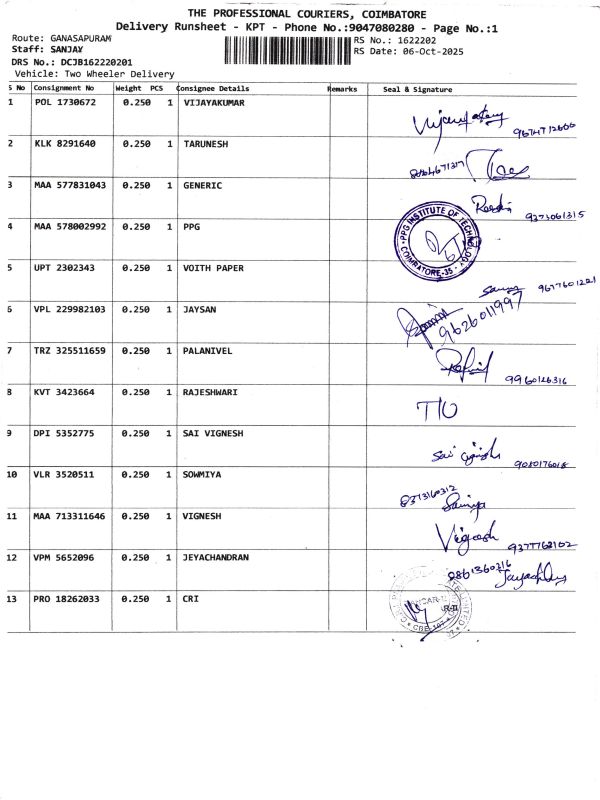 THE PROFESSIONAL COURIERS, COIMBATORE
Delivery Runsheet - KPT - Phone No.:9047080280 - Page No.:1
Route: GANASAPURAM
RS No.: 1622202
Staff: SANJAY
RS Date: 06-Oct-2025
DRS No.: DCJB162220201
Vehicle: Two Wheeler Delivery
S No Consignment No Weight PCS Consignee Details Remarks Seal & Signature
1 POL 1730672 0.250 1 VIJAYAKUMAR
2 KLK 8291640 0.250 1 TARUNESH
3 MAA 577831043 0.250 1 GENERIC
9373061315
4 MAA 578002992 0.250 1 PPG
PPG INSTITUTE OF TECHNOLOGY COIMBATORE-35
5 UPT 2302343 0.250 1 VOITH PAPER
9677601221
6 VPL 229982103 0.250 1 JAYSAN
9626011997
7 TRZ 325511659 0.250 1 PALANIVEL
9960126316
8 KVT 3423664 0.250 1 RAJESHWARI
T/O
9 DPI 5352775 0.250 1 SAI VIGNESH
Sai Vignesh
9080176018
10 VLR 3520511 0.250 1 SOWMIYA
8373160312
11 MAA 713311646 0.250 1 VIGNESH
Vignesh
9377762102
12 VPM 5652096 0.250 1 JEYACHANDRAN
9861360316
13 PRO 18262033 0.250 1 CRI